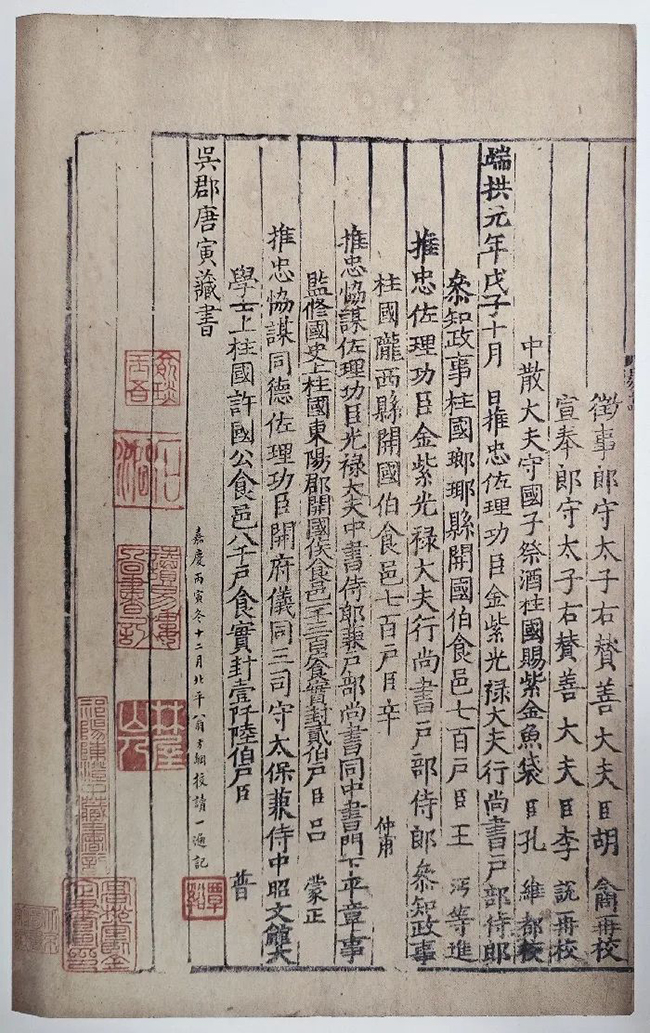 徵事郎守太子右贊善大夫臣胡 令再校
宣奉郎守太子右贊善大夫臣李 説再校
中散大夫守國子祭酒柱國賜紫金魚袋臣孔 維都校
端拱元年戊子十月 日推忠佐理功臣金紫光禄大夫行尚書户部侍郎
叅知政事柱國瑯瑘縣開國伯食邑七百户臣王 沔等進
推忠佐理功臣金紫光禄大夫行尚書户部侍郎叅知政事
柱國隴西縣開國伯食邑七百户臣辛 仲甫
推忠恊謀佐理功臣光禄大夫中書侍郎兼户部尚書同中書門下平章事
監修國史上柱國東陽郡開國侯食邑一千三百户食實封貳伯户臣吕 蒙正
推忠恊謀同德佐理功臣開府儀同三司守太保兼侍中昭文館大
學士上柱國許國公食邑八千户食實封壹阡陸伯户臣 普
吳郡唐寅藏書
嘉慶丙寅冬十二月北平翁方綱校讀一過記
覃谿
俞琰玉吾
石澗
讀易樓
祁陽陳澄中藏書記